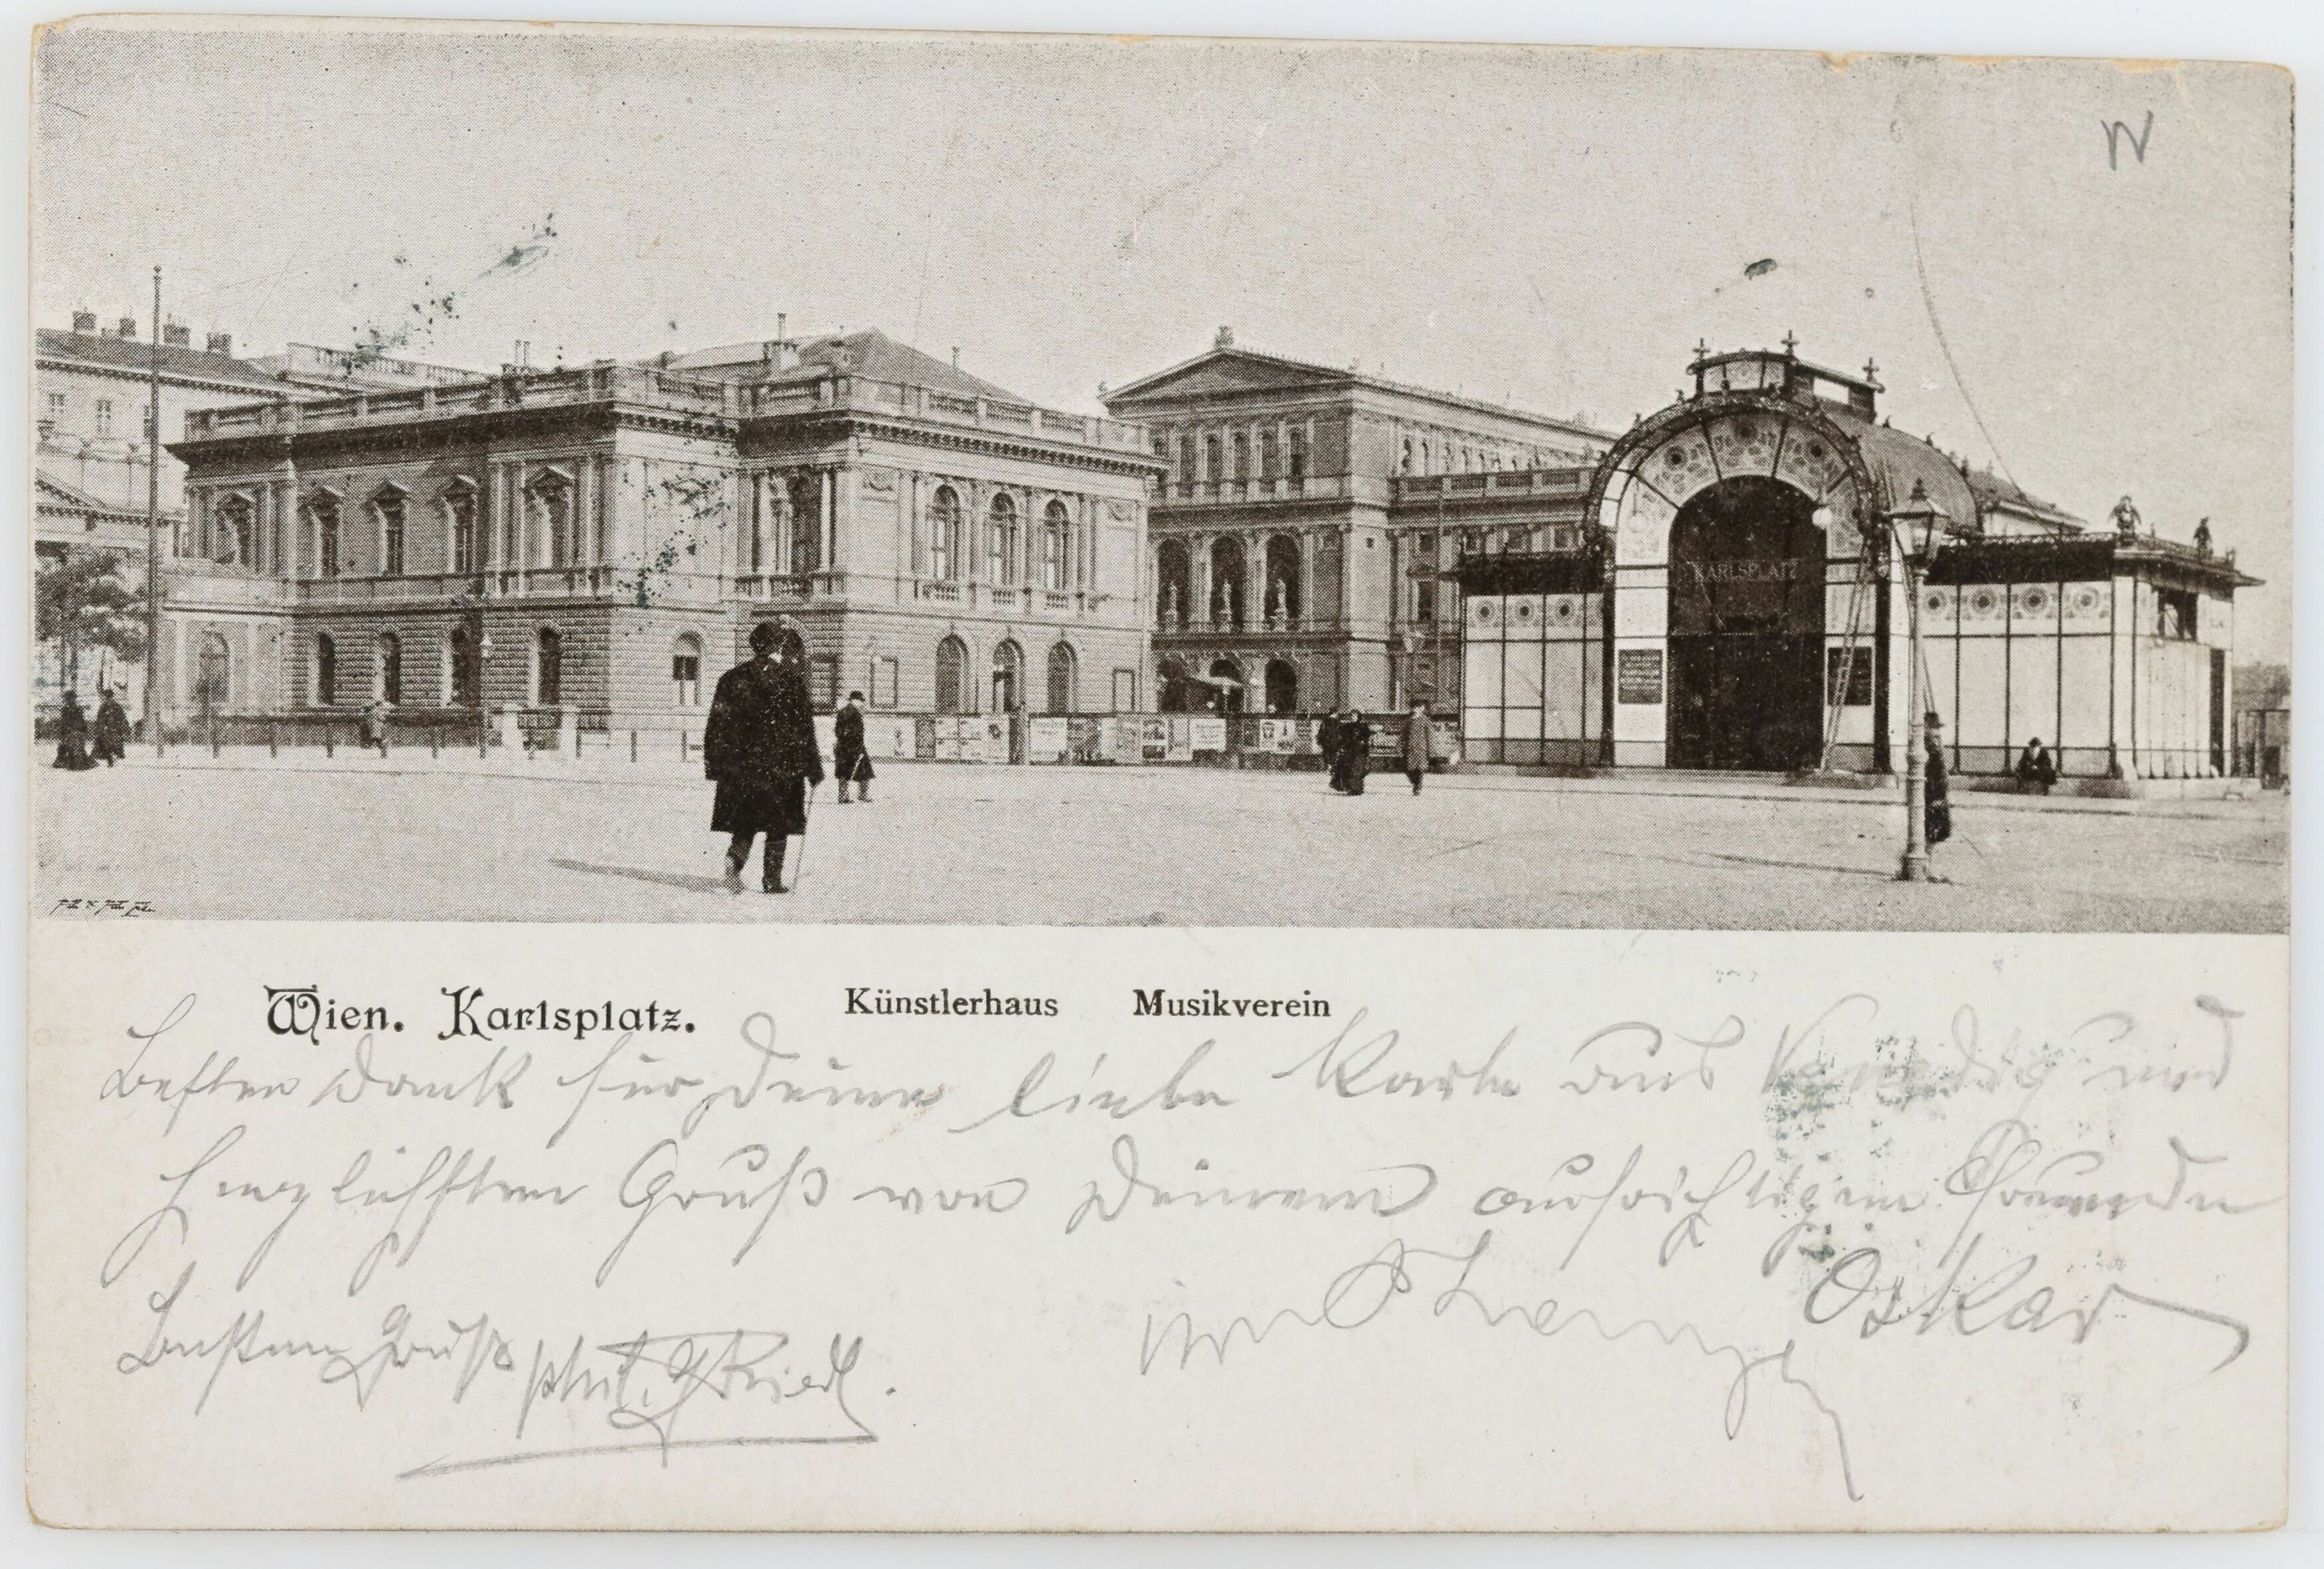 W
KARLSPLATZ
Wien. Karlsplatz. Künstlerhaus Musikverein
Besten Dank für Deine liebe Karte aus Venedig und
herzlichsten Gruß von Deinem aufrichtigen Freunde
Oskar
Besten Gruß phil. Riedl.